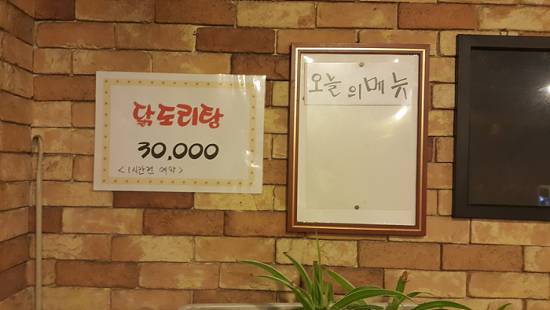 닭도리탕
30,000
<1시간전 예약>
오늘의메뉴